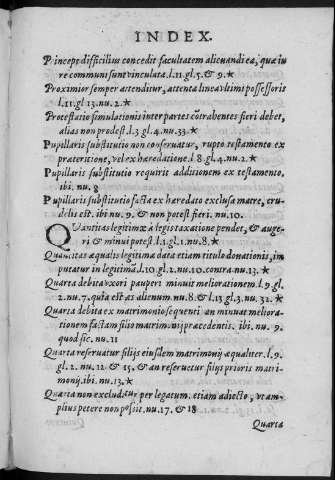 INDEX.
Princeps difficilius concedit facultatem alienandi ea, quæ iu
re communi sunt vinculata. l.11. gl.5. & 9. ★
Proximior semper attenditur, attenta linea vltimi possessoris
l.11. gl 13. nu.2. ★
Protestatio simulationis inter partes cōtrahentes fieri debet,
alias non prodest. l.3 gl.4. nu.33. ★
Pupillaris substitutio non conseruatur, rupto testamento ex
præteritione, vel exhæredatione. l 8. gl.4. nu.2. ★
Pupillaris substitutio requirit additionem ex testamento.
ibi. nu. 8
Pupillaris substitutio facta exhæredato exclusa matre, cru-
delis est. ibi nu. 9. & non potest fieri. nu.10.
QVantitas legitimæ à legis taxatione pendet, & auge-
ri & minui potest. l.3. gl.1. nu.8. ★
Quantitas æqualis legitima data etiam titulo donationis, im
putatur in legitimā. l.10 gl.2. nu.10. contra nu.13. ★
Quarta debita vxori pauperi minuit meliorationem. l.9. gl.
2. nu.7. quia est æs alienum. nu.8. & l.13 gl.3. nu. 32. ★
Quarta debita ex matrimonio sequenti an minuat meliora-
tionem factam filio matrimonij præcedentis. ibi. nu. 9.
quod sic. nu.11
Quarta reseruatur filijs eiusdem matrimonij æqualiter. l.9.
gl.2. nu.12 & 15. & an reseruetur filijs prioris matri-
monij. ibi nu.13. ★
Quarta non excluditur per legatum. etiam adiecto, vt am-
plius petere non possit. nu.17. & 18
Quarta